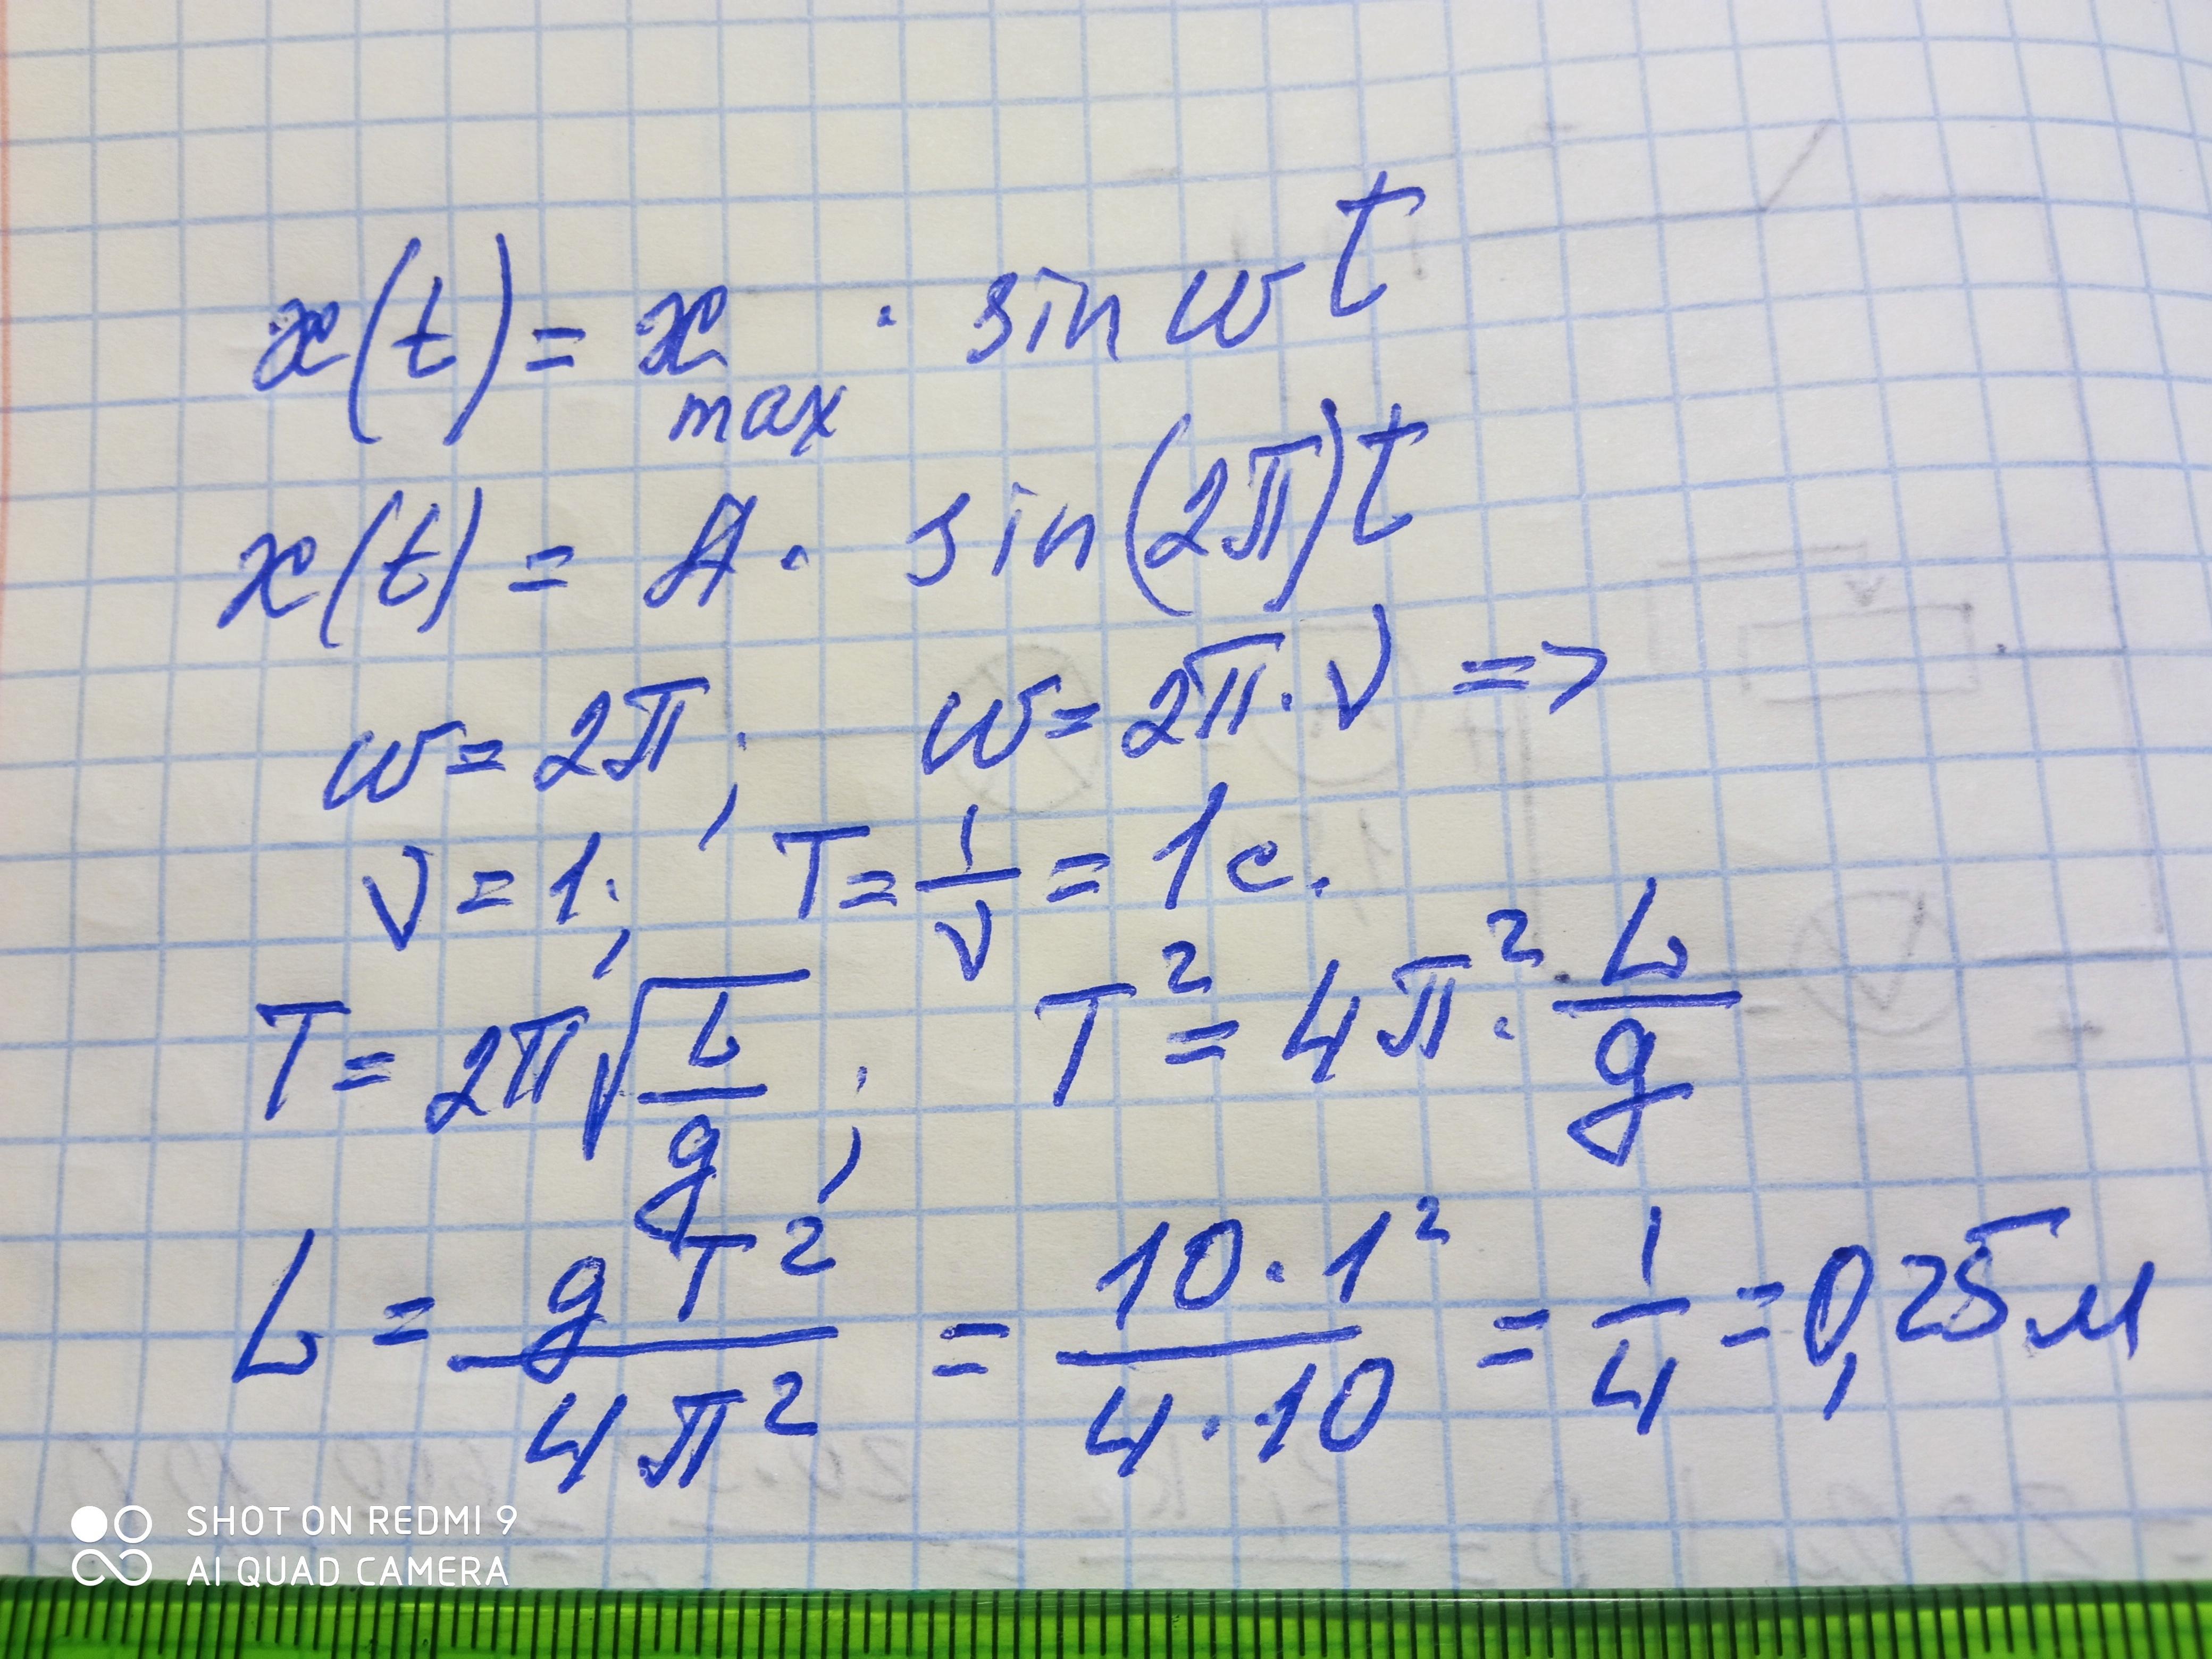 x(t) = x max · sin ωt
x(t) = A · sin(2π)t
ω = 2π; ω = 2π · ν =>
ν = 1; T = 1/ν = 1 с.
T = 2π√(L/g); T² = 4π² · L/g
L = gT²/4π² = 10 · 1²/4 · 10 = 1/4 = 0,25 м
SHOT ON REDMI 9
AI QUAD CAMERA